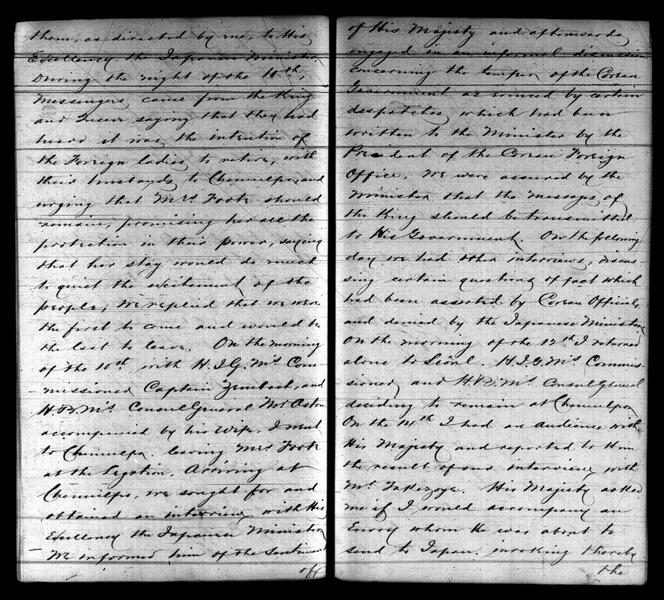 them, as directed by me, to His
Excellency, the Japanese Minister.
During the night of the 10th,
Messengers came from the King
and Queen saying that they had
heard it was the intention of
the Foreign ladies to retire, with
their husbands, to Chemulpo, and
urging that Mrs. Foote should
remain, promising her all the
protection in their power, saying
that her stay would do much
to quiet the excitement of the
people, We replied that we were
the first to come and would be
the last to leave. On the morning
of the 10th with H.I.G.M's Com-
-missioned Captain Zembsch, and
H.B.M's Consul General Mr Aston
accompanied by his Wife, I went
to Chemulpo leaving Mrs Foote
at the Legation. Arriving at
Chemulpo, we sought for and
obtained an interview with His
Excellency the Japanese Minister
We informed him of the sentiment
of
of His Majesty and afterwards
engaged in an informal discussion
concerning the temper of the Corean
Government as evinced by certain
despatches which had been
written to the Minister by the
President of the Corean Foreign
Office. We were assured by the
Minister that the message of
the King should be transmitted
to His Government. On the following
day we had other interviews, discus-
sing certain questions of fact which
had been asserted by Corean Officials,
and denied by the Japanese Minister.
On the morning of the 12th I returned
alone to Seoul. H.I.G.M's Commis-
sioner, and H.B.M's Consul General
deciding to remain at Chemulpo.
On the 14th I had an Audience with
His Majesty and reported to Him
the result of our interview with
Mr. Takezoye. His Majesty asked
me if I would accompany an
Envoy whom He was about to
send to Japan, invoking thereby
the